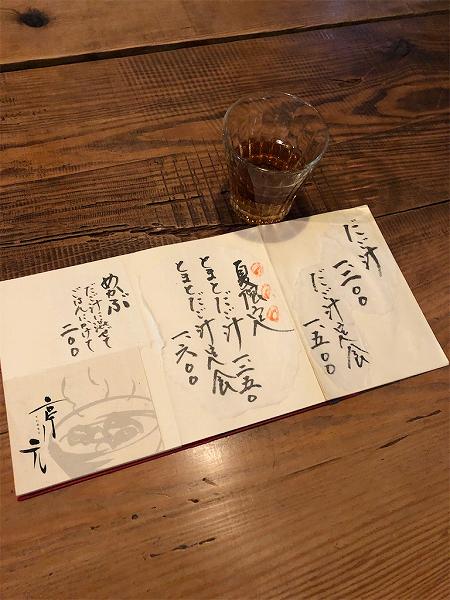 だご汁
一二〇〇
だご汁定食
一五〇〇
夏限定
とまとだご汁 一三五〇
とまとだご汁定食
一六〇〇
めかぶ
だご汁に混ぜて
ごはんにかけて
二〇〇
亭元